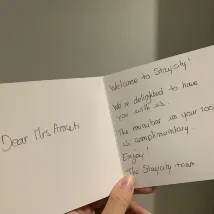 Dear Mrs
Welcome to Staycity!
We're delighted to have
you with us.
The minibar in your room
is complimentary.
Enjoy!
The Staycity team